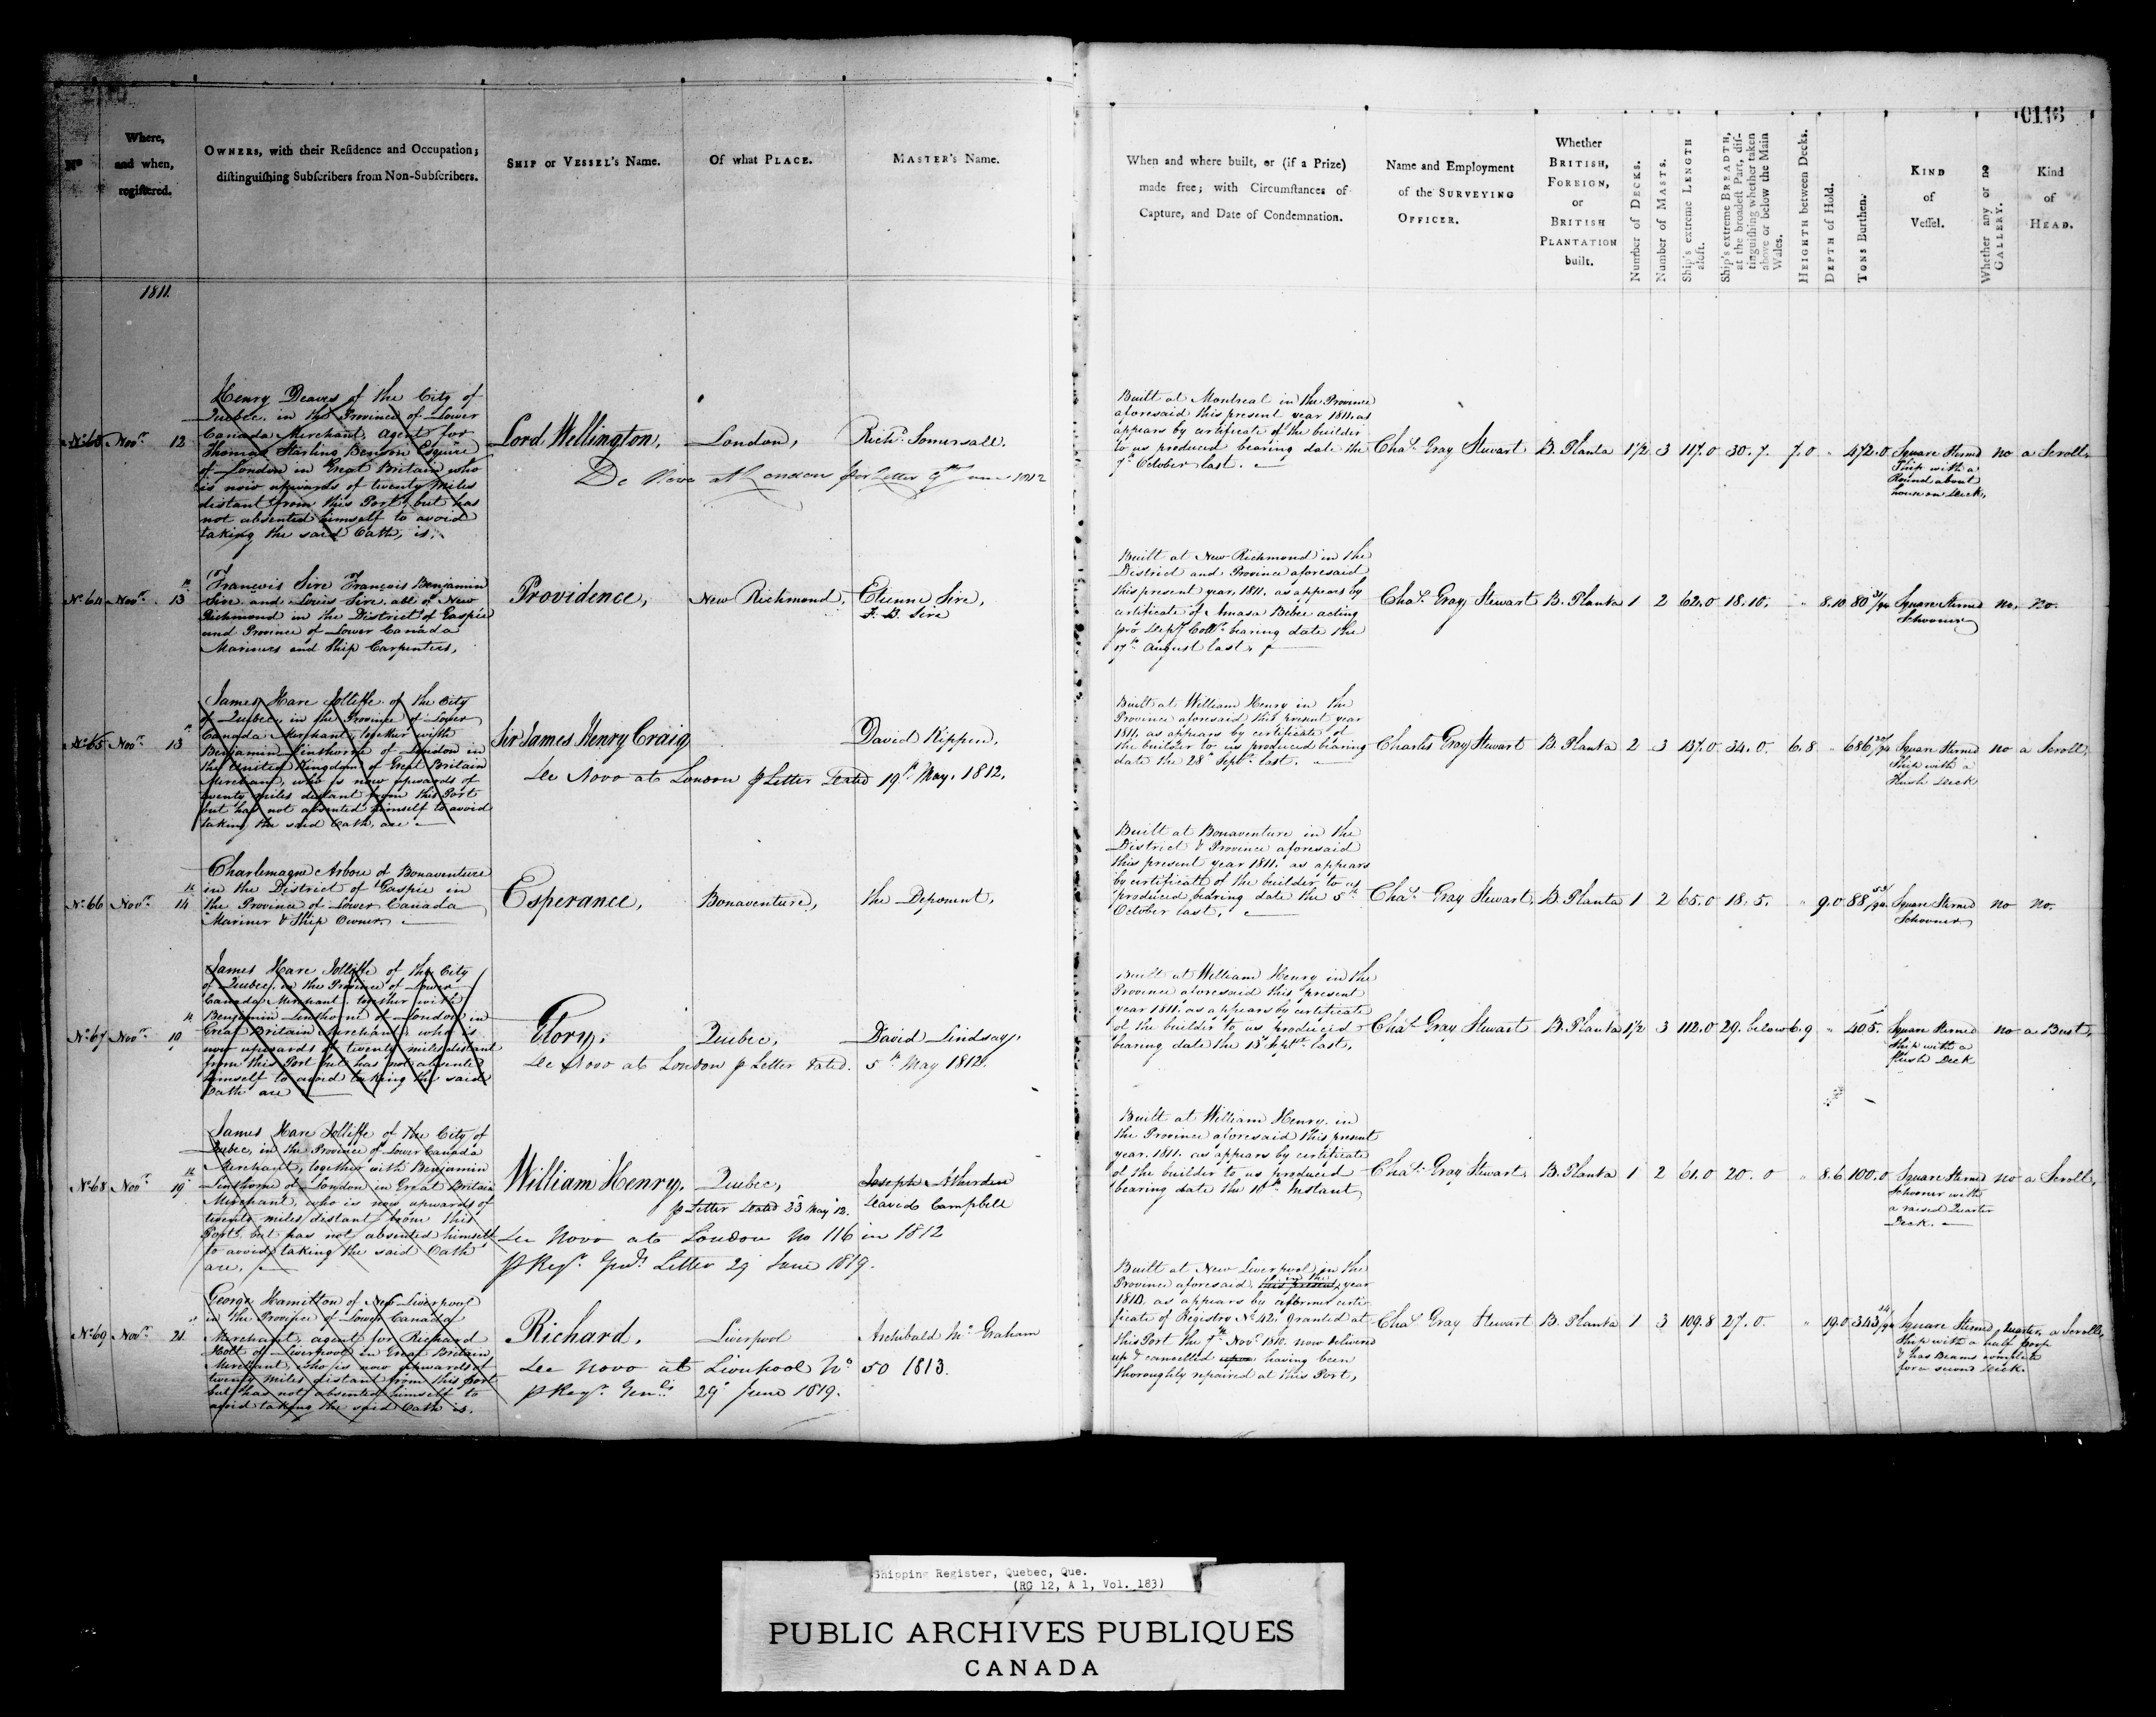 0116
No
Where, and when, registered.
OWNERS, with their Residence and Occupation; distinguishing Subscribers from Non-Subscribers.
SHIP or VESSEL's Name.
Of what PLACE.
MASTER's Name.
When and where built, or (if a Prize) made free; with Circumstances of Capture, and Date of Condemnation.
Name and Employment of the SURVEYING OFFICER.
Whether BRITISH, FOREIGN, or BRITISH PLANTATION built.
Number of DECKS.
Number of MASTS.
Ship's extreme LENGTH aloft.
Ship's extreme BREADTH, at the broadest Part, distinguishing whether taken above or below the Main Wales.
HEIGHTH between Decks.
DEPTH of Hold.
TONS Burthen.
KIND of Vessel.
Whether any or no GALLERY.
Kind of HEAD.
1811.
No 63 Novr 12
Henry Deaves of the City of
Quebec, in the Province of Lower
Canada Merchant, Agent for
Thomas Starling Benson Esquire
of London in Great Britain who
is now upwards of twenty miles
distant from this Port, but has
not absented himself to avoid
taking the said Oath, is.
Lord Wellington,
London,
Richd Somersall.
De Novo at London per Letter 9th June 1812
Built at Montreal in the Province
aforesaid this present year 1811. as
appears by certificate of the builder
to us produced bearing date the
7th October last.
Chas Gray Stewart B. Planta 1 1/2 3 117.0 30.7. 7.0 " 472.0
Square Sterned
Ship with a
Round about
house on Deck,
no a Scroll,
No 64 Novr 13th
François Sire François Benjamin
Sire and Louis Sire all of New
Richmond in the District of Gaspié
and Province of Lower Canada
Mariners and Ship Carpenters,
Providence,
New Richmond,
Etienne Sire,
F. B. Sire
Built at New Richmond in the
District and Province aforesaid
this present year, 1811. as appears by
certificate of Amasa Bebee acting
pro Depy Collr bearing date the
17th August last.
Chas Gray Stewart B. Planta 1 2 62.0 18.10. " 8.10 80 31/94
Square Sterned
Schooner
no, no.
No 65 Novr 13th
James Hare Jolliffe of the City
of Quebec, in the Province of Lower
Canada Merchant, together with
Benjamin Linthorne of London in
the United Kingdom of Great Britain
Merchant, who is now upwards of
twenty miles distant from this Port
but has not absented himself to avoid
taking the said Oath, are
Sir James Henry Craig
David Kippen,
De Novo at London p Letter Dated 19th May, 1812.
Built at William Henry in the
Province aforesaid this present year
1811. as appears by certificate of
the builder to us produced bearing
date the 28th Septr last.
Charles Gray Stewart B. Planta 2 3 137.0 34.0. 6.8 " 686
Square Sterned
Ship with a
Flush Deck
no a Scroll,
No 66 Novr 14th
Charlemagne Arbou of Bonaventure
in the District of Gaspié in
the Province of Lower Canada
Mariner & Ship Owner,
Esperance,
Bonaventure,
the Deponent,
Built at Bonaventure in the
District & Province aforesaid
this present year 1811. as appears
by certificate of the builder to us
produced, bearing date the 5th
October last,
Chas Gray Stewart, B. Planta 1 2 65.0 18.5. " 9.0 88 53/94
Square Sterned
Schooner
no no.
No 67 Novr
James Hare Jolliffe of the City
of Quebec, in the Province of Lower
Canada Merchant, together with
Benjamin Linthorne of London in
Great Britain Merchant, who is
now upwards of twenty miles distant
from this Port but has not absented
himself to avoid taking the said
Oath are
Glory,
Quebec,
David Lindsay,
De Novo at London p Letter Dated. 5th May 1812.
Built at William Henry in the
Province aforesaid this present
year 1811. as appears by certificate
of the builder to us produced
bearing date the 13th Septr last,
Chas Gray Stewart B. Planta 1 1/2 3 112.0 29. below 6.9 " 405.
Square Sterned
Ship with a
flush Deck
no a Bust,
No 68 Novr 19th
James Hare Jolliffe of the City of
Quebec, in the Province of Lower Canada
Merchant, together with Benjamin
Linthorne of London in Great Britain
Merchant, who is now upwards of
twenty miles distant from this
Port, but has not absented himself
to avoid taking the said Oath
are,
William Henry,
Quebec,
Joseph
David Campbell
p Letter Dated 23 May 12.
De Novo at London No 116 in 1812
p Regr Genls Letter 29 June 1819.
Built at William Henry. in
the Province aforesaid this present
year. 1811. as appears by certificate
of the builder to us produced
bearing date the 10th Instant,
Chas Gray Stewart, B. Planta 1 2 61.0 20.0 " 8.6 100.0
Square Sterned
Schooner with
a raised Quarter
Deck.
no a Scroll,
No 69 Novr 21
George Hamilton of New Liverpool
in the Province of Lower Canada
Merchant, agent for Richard
Holt of Liverpool in Great Britain
Merchant, who is now upwards of
twenty miles distant from this port
but has not absented himself to
avoid taking the said Oath is.
Richard,
Liverpool
Archibald Mc Graham
De Novo at Liverpool No 50 1813.
p Regr Genls 29 June 1819.
Built at New Liverpool in the
Province aforesaid, this present in the year
1810, as appears by a former certi-
ficate of Registry No 42. Granted at
this Port the 7th Novr 1810. now delivered
up & cancelled upon having been
thoroughly repaired at this Port,
Chas Gray Stewart B. Planta 1 3 109.8 27.0. " 19.0 343 14/94
Square Sterned
Ship with a half poop
& has Beams complete
for a second Deck.
Quarter, a Scroll,
Shipping Register, Quebec, Que.
(RG 12, A 1, Vol. 183)
PUBLIC ARCHIVES PUBLIQUES
CANADA